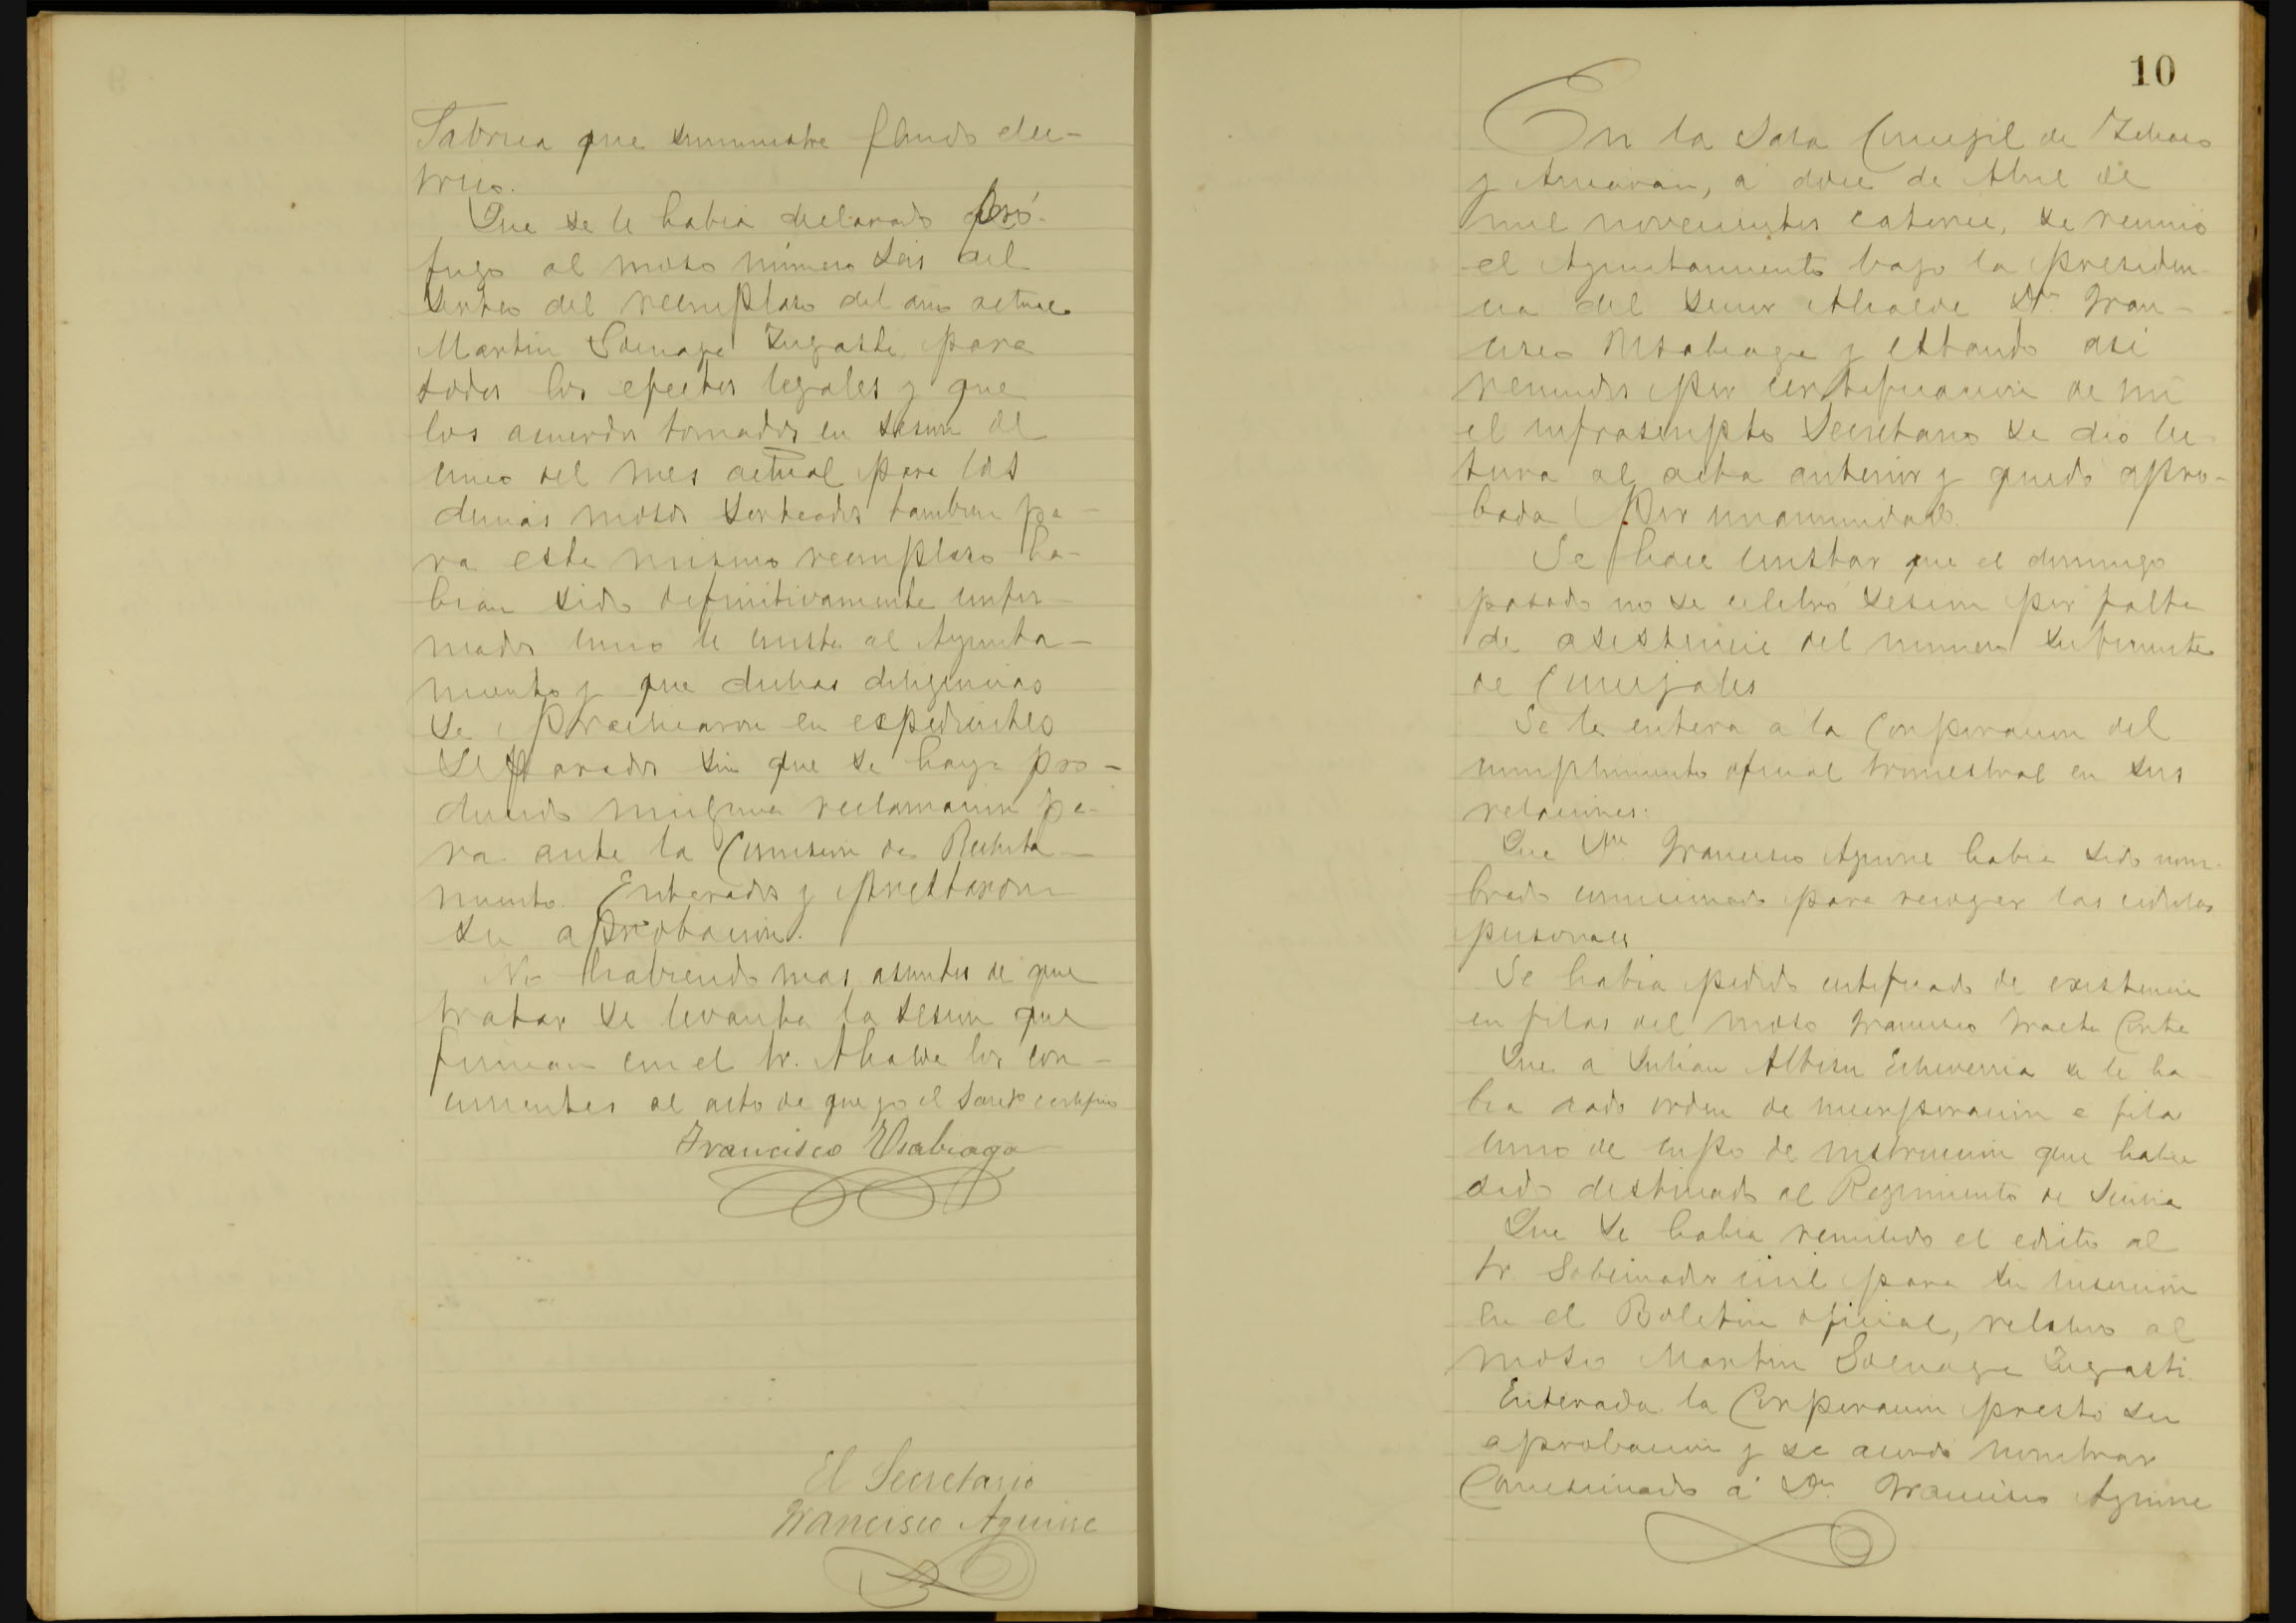 Fabrica que suministre fluido elec-
trico.
Que se le habia declarado pró-
fugo al mozo número seis del
sorteo del reemplazo del año actual
Martin Goenaga Zugasti para
todos los efectos legales y que
los acuerdos tomados en sesion del
cinco del mes actual para los
demas mozos sorteados tambien pa-
ra este mismo reemplazo ha-
bian sido definitivamente confir-
mados como le consta al Ayunta-
miento y que dichas diligencias
se practicaron en expedientes
separados sin que se haya pro-
ducido ninguna reclamacion pa-
ra ante la Comision de Recluta-
miento. Enterados y prestaron
su aprobacion.
No habiendo mas asuntos de que
tratar se levanta la sesion que
firman con el Sr. Alcalde los con-
currentes al acto de que yo el Secreto certifico
Francisco Usabiaga
El Secretario
Francisco Aguirre
10
En la Sala Concejil de Ichaso
y Arriaran, a doce de Abril de
mil novecientos catorce, se reunió
el Ayuntamiento bajo la presiden-
cia del Señor Alcalde Dn. Fran-
cisco Usabiaga y estando asi
reunidos por certificacion de mi
el infrascripto Secretario se dio lec-
tura al acta anterior y quedo apro-
bada por unanimidad.
Se hace constar que el domingo
pasado no se celebró sesion por falta
de asistencia del numero suficiente
de Concejales
Se le entera a la Corporacion del
cumplimiento oficial trimestral en sus
relaciones.
Que Dn. Francisco Aguirre habia sido nom-
brado comisionado para recoger las cedulas
personales
Se habia pedido certificado de existencia
en filas del mozo Francisco
Que a Julián Albisu Echeverria se le ha-
bia dado orden de incorporacion a filas
como de cupo de instruccion que habia
sido destinado al Regimiento de Sicilia
Que se habia remitido el edicto al
Sr. Gobernador civil para su insercion
en el Boletin oficial, relativo al
mozo Martin Goenaga Zugasti.
Enterada la Corporacion prestó su
aprobacion y se acordó nombrar
Comisionado á Dn. Francisco Aguirre